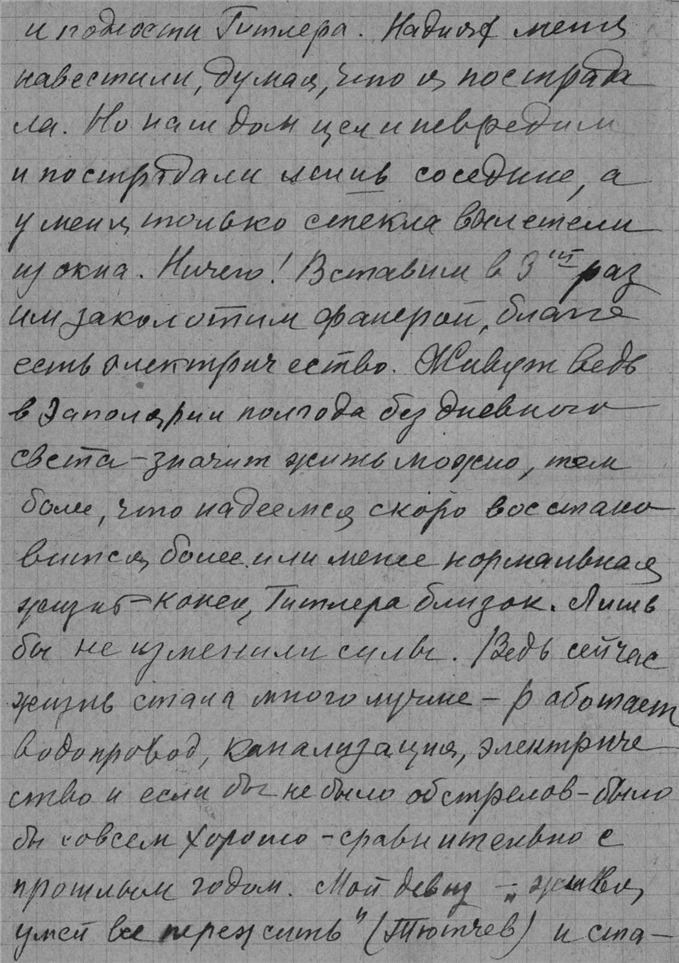 и подлости Гитлера. Надися меня
навестили, думая, что я пострада
ла. Но наш дом цел и невредим
и пострадали лишь соседние, а
у меня только стекла вылетели
из окна. Ничего! Вставим в 3ий раз
или заколотим фанерой, благо
есть электричество. Живут ведь
в Заполярии полгода без дневного
света – значит жить можно, тем
более, что надеемся скоро восстано
вится более или менее нормальная
жизнь – конец Гитлера близок. Лишь
бы не изменили силы. Ведь сейчас
жизнь стала много лучше – работает
водопровод, канализация, электриче
ство и если бы не было обстрелов – было
бы совсем хорошо – сравнительно с
прошлым годом. Мой девиз – „живя,
умей все пережить" (Тютчев) и ста–